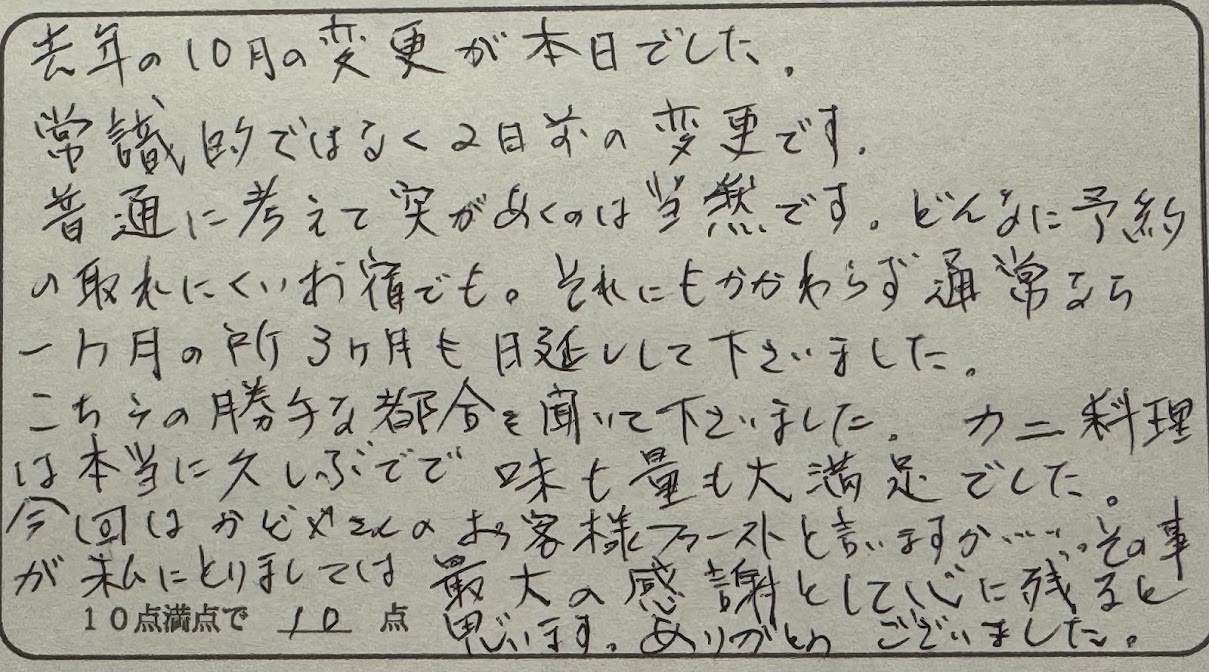 去年の10月の変更が本日でした。
常識的ではなく2日前の変更です。
普通に考えて実があくのは当然です。どんなに予約
の取れにくいお宿でも。それにもかかわらず通常なら
一ヶ月の所3ヶ月も日延しして下さいました。
こちらの勝手な都合を聞いて下さいました。カニ料理
は本当に久しぶでで味も量も大満足でした。
今回はかどやさんのお客様ファーストと言いますか……その事
が私にとりましては最大の感謝として心に残ると
10点満点で 10 点 思います。ありがとうございました。